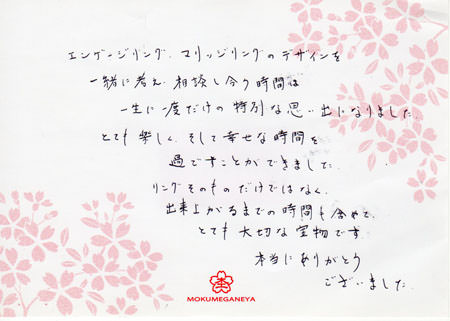 エンゲージリング、マリッジリングのデザインを
一緒に考え、相談し合う時間は
一生に一度だけの特別な思い出になりました。
とても楽しく、そして幸せな時間を
過ごすことができました。
リングそのものだけではなく、
出来上がるまでの時間も含めて、
とても大切な宝物です。
本当にありがとう
ございました。
MOKUMEGANEYA